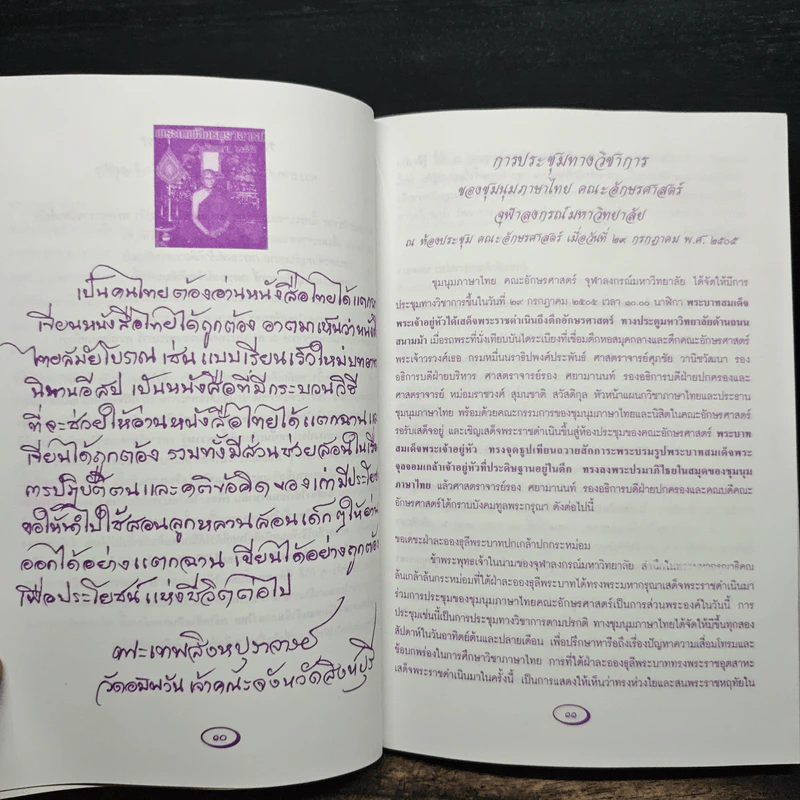 เป็นคนไทยต้องอ่านหนังสือไทยได้แตก
เขียนหนังสือไทยได้ถูกต้อง อาตมาเห็นว่าหนัง
ไทยสมัยโบราณ เช่น แบบเรียนเร็วใหม่
นิทานอีสป เป็นหนังสือที่มีกระบวนวิธี
ที่จะช่วยให้อ่านหนังสือไทยได้แตกฉาน
เขียนได้ถูกต้อง รวมทั้งมีส่วนช่วยสอนใน
การปฏิบัติตนและคติข้อคิดของเก่ามีประโยช
ขอให้นำไปใช้สอนลูกหลานสอนเด็กๆให้อ่าน
ออกได้อย่างแตกฉาน เขียนได้อย่างถูกต้อง
เพื่อประโยชน์แห่งชีวิตต่อไป
พระเทพสิงหบุราจารย์
วัดอัมพวัน เจ้าคณะจังหวัดสิงห์บุรี
๑๐
การประชุมทางวิชาการ
ของชุมนุมภาษาไทย คณะอักษรศาสตร์
จุฬาลงกรณ์มหาวิทยาลัย
ณ ห้องประชุม คณะอักษรศาสตร์ เมื่อวันที่ ๒๙ กรกฎาคม พ.ศ. ๒๕๐๕
ชุมนุมภาษาไทย คณะอักษรศาสตร์ จุฬาลงกรณ์มหาวิทยาลัย ได้จัดให้มีการ
ประชุมทางวิชาการขึ้นในวันที่ ๒๙ กรกฎาคม ๒๕๐๕ เวลา ๑๐.๐๐ นาฬิกา พระบาทสมเด็จ
พระเจ้าอยู่หัวได้เสด็จพระราชดำเนินถึงตึกอักษรศาสตร์ ทางประตูมหาวิทยาลัยด้านถนน
สนามม้า เมื่อรถพระที่นั่งเทียบบันไดระเบียงที่เชื่อมตึกหอสมุดกลางและตึกคณะอักษรศาสตร์
พระเจ้าวรวงศ์เธอ กรมหมื่นนราธิปพงศ์ประพันธ์ ศาสตราจารย์ศุภชัย วานิชวัฒนา รอง
อธิการบดีฝ่ายบริหาร ศาสตราจารย์รอง ศยามานนท์ รองอธิการบดีฝ่ายปกครองและ
ศาสตราจารย์ หม่อมราชวงศ์ สุมนชาติ สวัสดิกุล หัวหน้าแผนกวิชาภาษาไทยและประธาน
ชุมนุมภาษาไทย พร้อมด้วยคณะกรรมการของชุมนุมภาษาไทยและนิสิตในคณะอักษรศาสตร์
รอรับเสด็จอยู่ และเชิญเสด็จพระราชดำเนินขึ้นสู่ห้องประชุมของคณะอักษรศาสตร์ พระบาท
สมเด็จพระเจ้าอยู่หัว ทรงจุดธูปเทียนถวายสักการะพระบรมรูปพระบาทสมเด็จพระ
จุลจอมเกล้าเจ้าอยู่หัวที่ประดิษฐานอยู่ในตึก ทรงลงพระปรมาภิไธยในสมุดของชุมนุม
ภาษาไทย แล้วศาสตราจารย์รอง ศยามานนท์ รองอธิการบดีฝ่ายปกครองและคณบดีคณะ
อักษรศาสตร์ได้กราบบังคมทูลพระกรุณา ดังต่อไปนี้
ขอเดชะฝ่าละอองธุลีพระบาทปกเกล้าปกกระหม่อม
ข้าพระพุทธเจ้าในนามของจุฬาลงกรณ์มหาวิทยาลัย
ล้นเกล้าล้นกระหม่อมที่ได้ฝ่าละอองธุลีพระบาทได้ทรงพระมหากรุณาเสด็จพระราชดำเนินมา
ร่วมการประชุมของชุมนุมภาษาไทยคณะอักษรศาสตร์เป็นการส่วนพระองค์ในวันนี้ การ
ประชุมเช่นนี้เป็นการประชุมทางวิชาการตามปรกติ ทางชุมนุมภาษาไทยได้จัดให้มีขึ้นทุกสอง
สัปดาห์ในวันอาทิตย์ต้นและปลายเดือน เพื่อปรึกษาหารือถึงเรื่องปัญหาความเสื่อมโทรมและ
ข้อบกพร่องในการศึกษาวิชาภาษาไทย การที่ใต้ฝ่าละอองธุลีพระบาททรงพระราชอุตสาหะ
เสด็จพระราชดำเนินมาในครั้งนี้ เป็นการแสดงให้เห็นว่าทรงห่วงใยและสนพระราชหฤทัยใน
๑๑